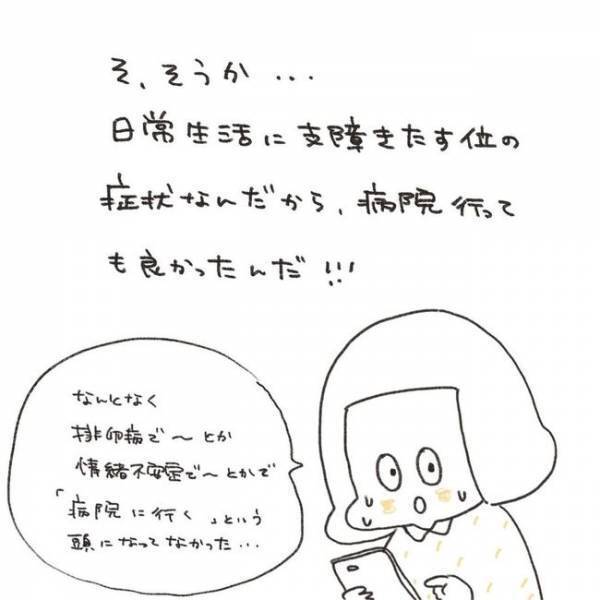 そ、そうか...
日常生活に支障きたす位の
症状なんだから、病院行って
も良かったんだ!!!
なんとなく
排卵痛で〜とか
情緒不安定で〜とかで
「病院に行く」という
頭になってなかった...